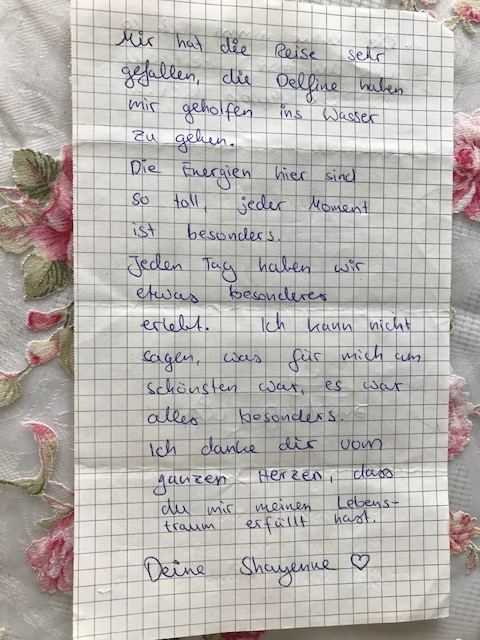 Mir hat die Reise sehr
gefallen, die Delfine haben
mir geholfen ins Wasser
zu gehen.
Die Energien hier sind
so toll, jeder Moment
ist besonders.
Jeden Tag haben wir
etwas besonderes
erlebt. Ich kann nicht
sagen, was für mich am
schönsten war, es war
alles besonders.
Ich danke dir vom
ganzen Herzen, dass
du mir meinen Lebens-
traum erfüllt hast.
Deine Shayenne ♡